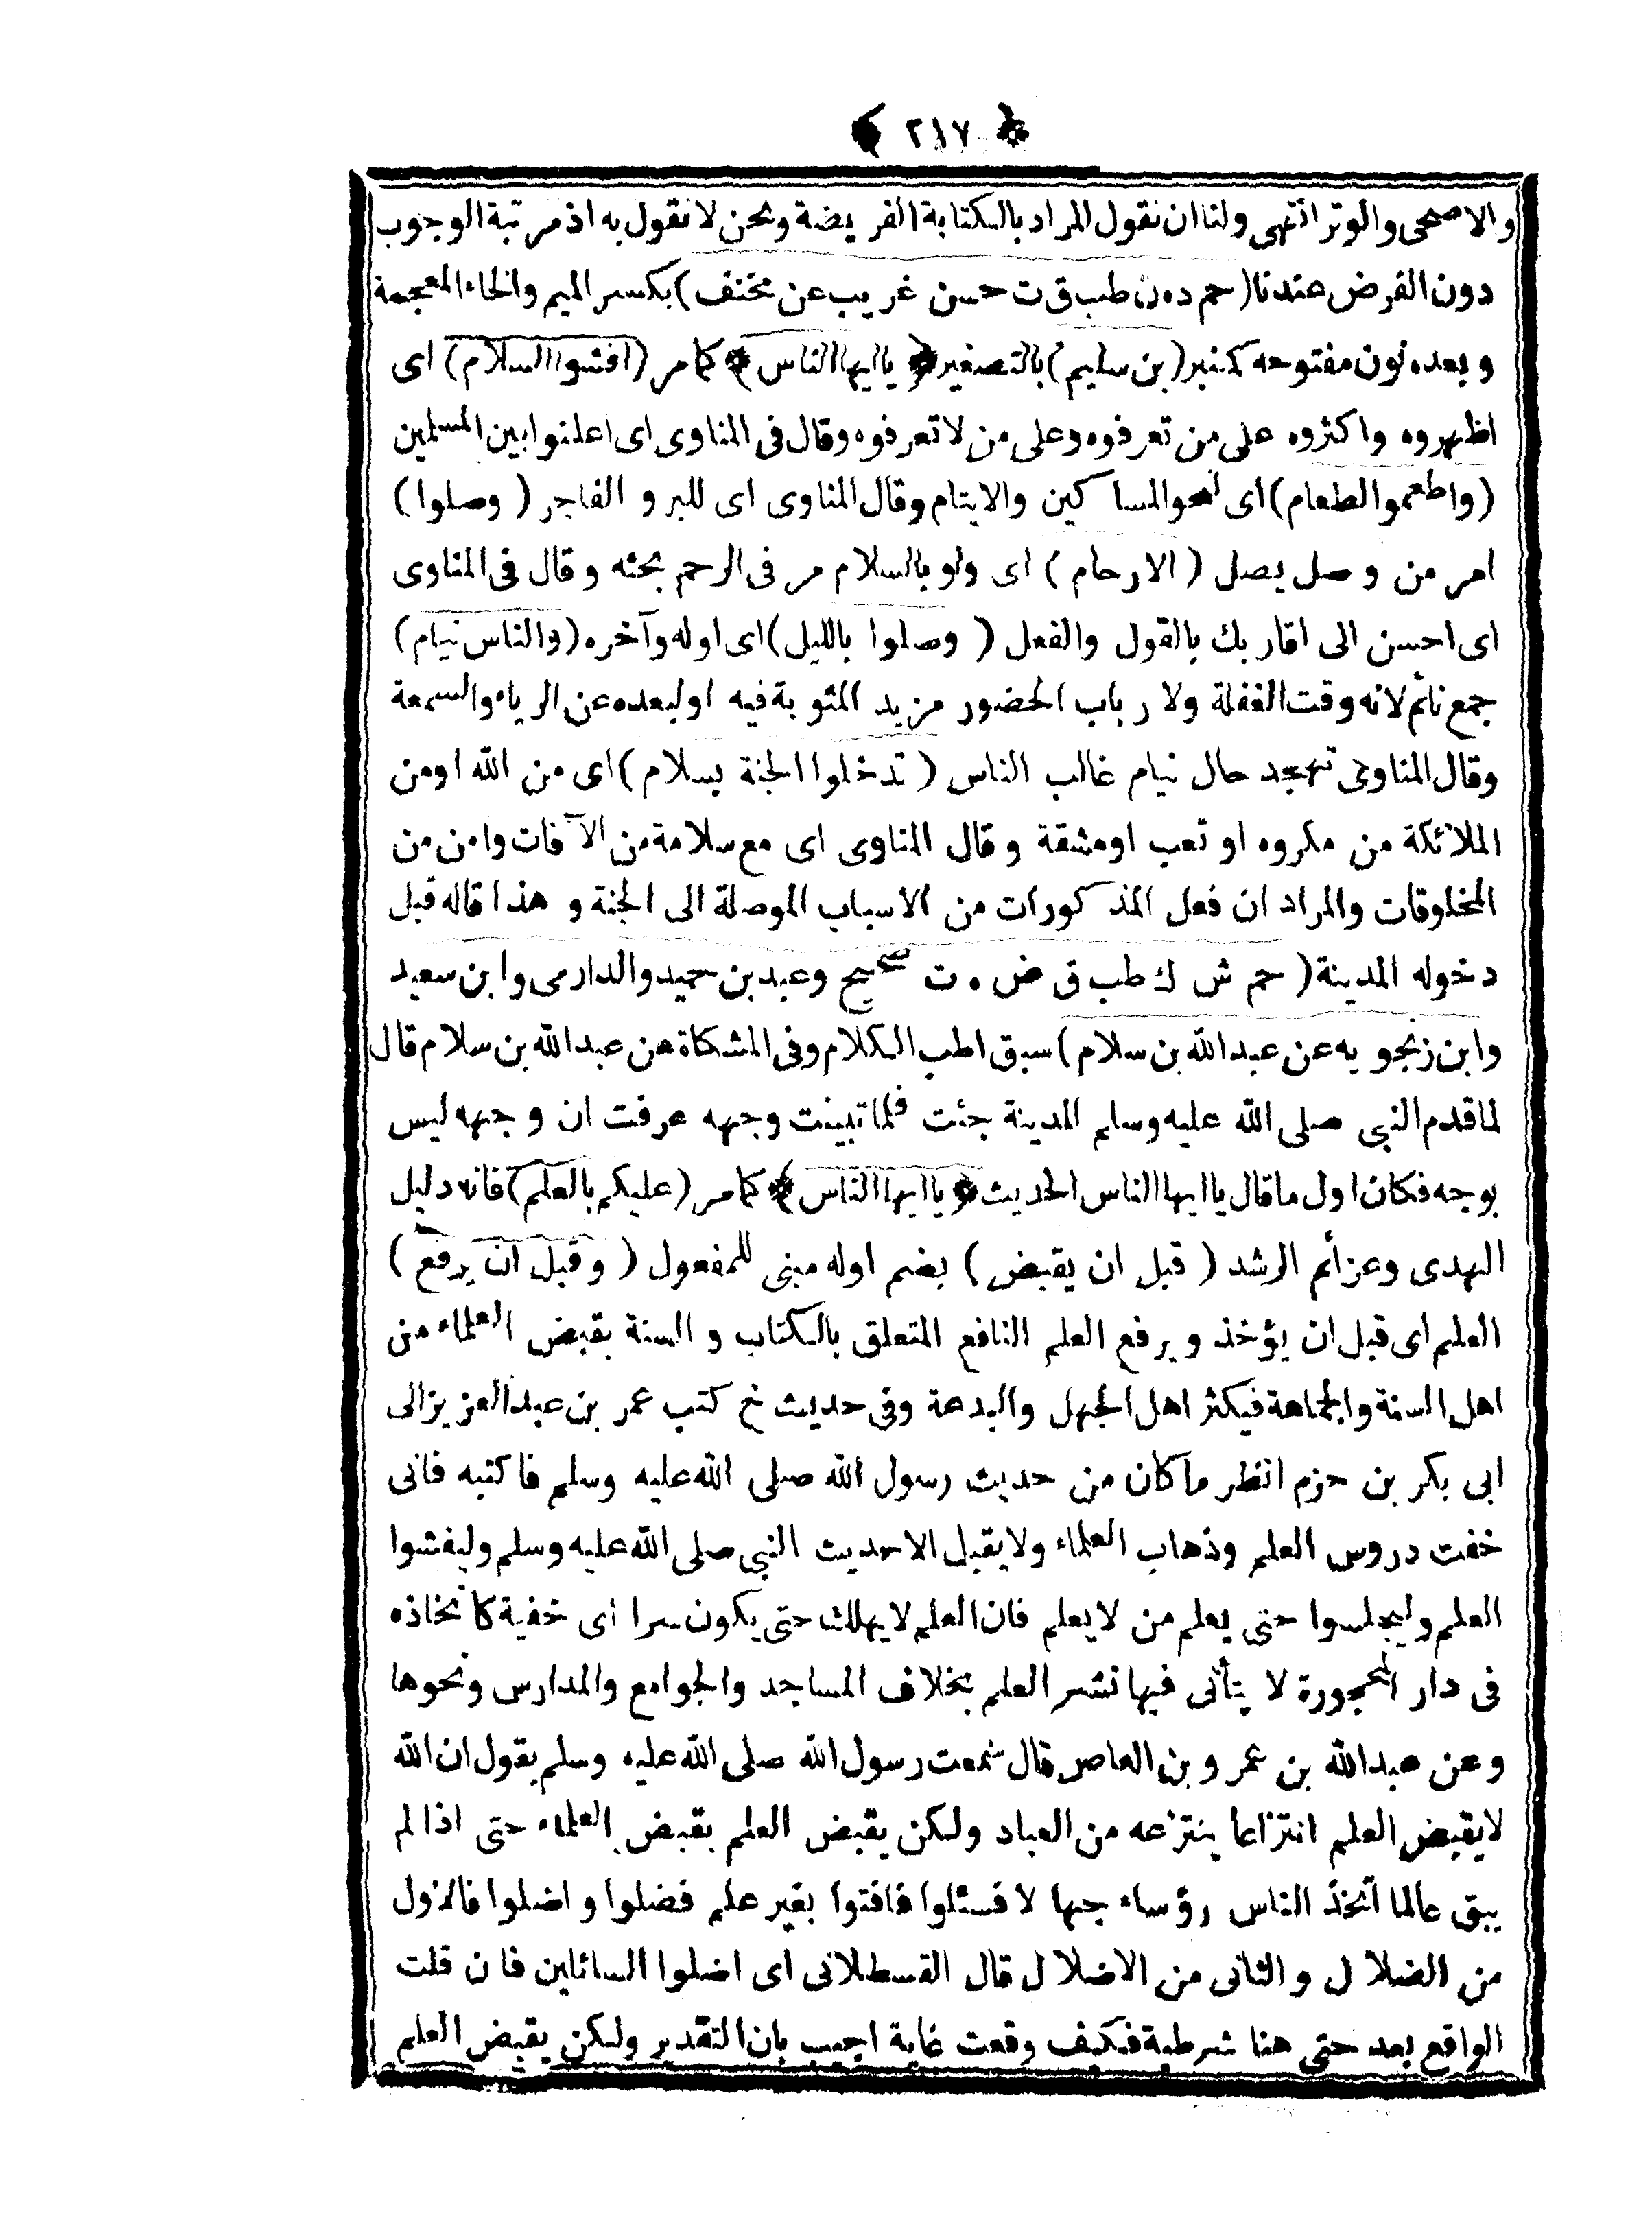 ﴿ ٢١٧ ﴾
والاضحى والوتر انتهى ولنا ان نقول المراد بالكتابة الفريضة ونحن لانقول به اذ مرتبة الوجوب
دون الفرض عندنا (حم د ه ن طب ق ت حسن غريب عن مخنف) بكسر الميم والخاء المعجمة
وبعده نون مفتوحه كمنبر (بن سليم) بالتصغير ﴿ ياايها الناس ﴾ كمامر (افشوا السلام) اى
اظهروه واكثروه على من تعرفوه وعلى من لاتعرفوه وقال فى المناوى اى اعلنوا بين المسلمين
(واطعموا الطعام) اى نحو المساكين والايتام وقال المناوى اى للبر و الفاجر (وصلوا)
امر من وصل يصل (الارحام) اى ولو بالسلام مر فى الرحم بحثه وقال فى المناوى
اى احسن الى اقاربك بالقول والفعل (وصلوا بالليل) اى اوله وآخره (والناس نيام)
جمع نائم لانه وقت الغفلة ولارباب الحضور مزيد المثوبة فيه اولبعده عن الرياء والسمعة
وقال المناوى تهجد حال نيام غالب الناس (تدخلوا الجنة بسلام) اى من الله اومن
الملائكة من مكروه او تعب اومشقة وقال المناوى اى مع سلامة من الآفات وامن من
المخلوقات والمراد ان فعل المذكورات من الاسباب الموصلة الى الجنة و هذا قاله قبل
دخوله المدينة (حم ش ك طب ق ض ه ت صحيح وعبد بن حميد والدارمى وابن سعيد
وابن زنجويه عن عبدالله بن سلام) سبق اطب الكلام وفى المشكاة عن عبدالله بن سلام قال
لماقدم النبى صلى الله عليه وسلم المدينة جئت فلما تبينت وجهه عرفت ان وجهه ليس
بوجه فكان اول ماقال ياايها الناس الحديث ﴿ ياايها الناس ﴾ كمامر (عليكم بالعلم) فانه دليل
الهدى وعزائم الرشد (قبل ان يقبض) بضم اوله مبنى للمفعول (وقبل ان يرفع)
العلم اى قبل ان يؤخذ ويرفع العلم النافع المتعلق بالكتاب و السنة بقبض العلماء من
اهل السنة والجماعة فيكثر اهل الجهل والبدعة وفى حديث خ كتب عمر بن عبدالعزيز الى
ابى بكر بن حزم انظر ماكان من حديث رسول الله صلى الله عليه وسلم فاكتبه فانى
خفت دروس العلم وذهاب العلماء ولايقبل الاحديث النبى صلى الله عليه وسلم وليفشوا
العلم وليجلسوا حتى يعلم من لايعلم فان العلم لايهلك حتى يكون سرا اى خفية كاتخاذه
فى دار المحجورة لا يتأتى فيها نشر العلم بخلاف المساجد والجوامع والمدارس ونحوها
وعن عبدالله بن عمر وبن العاص قال سمعت رسول الله صلى الله عليه وسلم يقول ان الله
لايقبض العلم انتزاعا ينتزعه من العباد ولكن يقبض العلم بقبض العلماء حتى اذا لم
يبق عالما اتخذ الناس رؤساء جهالا فسئلوا فافتوا بغير علم فضلوا واضلوا فالاول
من الضلال و الثانى من الاضلال قال القسطلانى اى اضلوا السائلين فان قلت
الواقع بعد حتى هنا شرطية فكيف وقعت غاية اجيب بان التقدير ولكن يقبض العلم